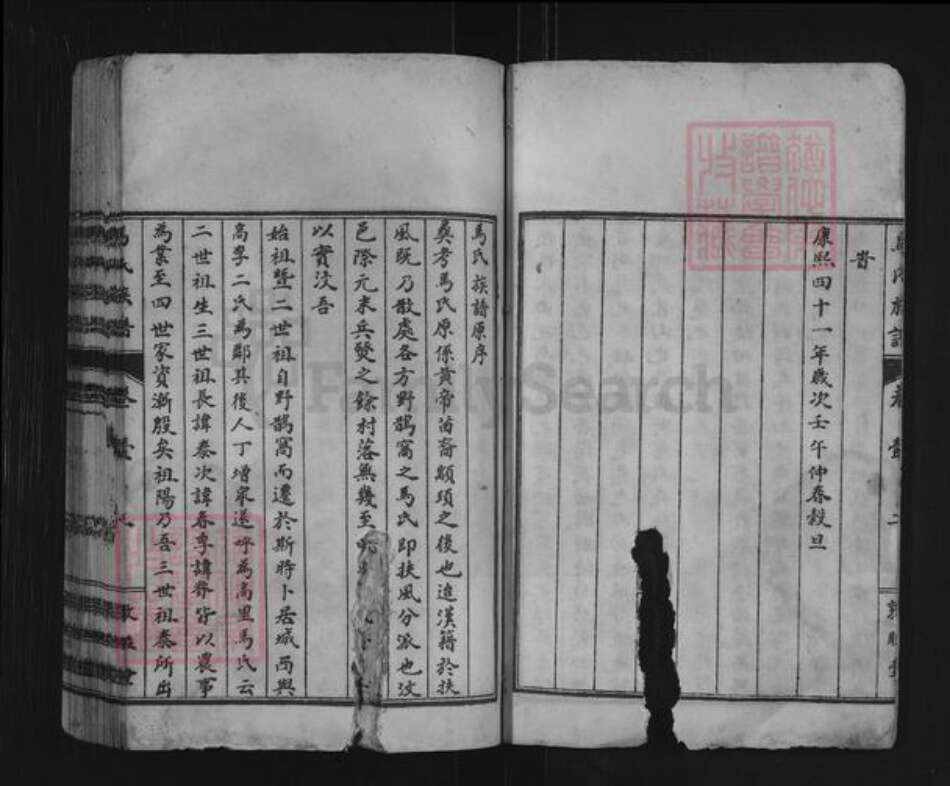 馬氏族譜 卷 二
旹
康熙四十一年歲次壬午仲春穀旦
馬氏族譜原序
奠考馬氏原係黃帝苗裔顓頊之後也迨漢籍於扶
風既乃散處各方野鵲窩之馬氏即扶風分派也汶
邑際元末兵燹之餘村落無幾至
以實汶吾
始祖暨二世祖自野鵲窩而遷於斯時卜居城西與
高李二氏為鄰其後人丁增眾遂呼為高里馬氏云
二世祖生三世祖長諱泰次諱春季諱 皆以農事
為業至四世家資漸殷矣祖陽乃吾三世祖泰所出
馬氏族譜 卷
FamilySearch